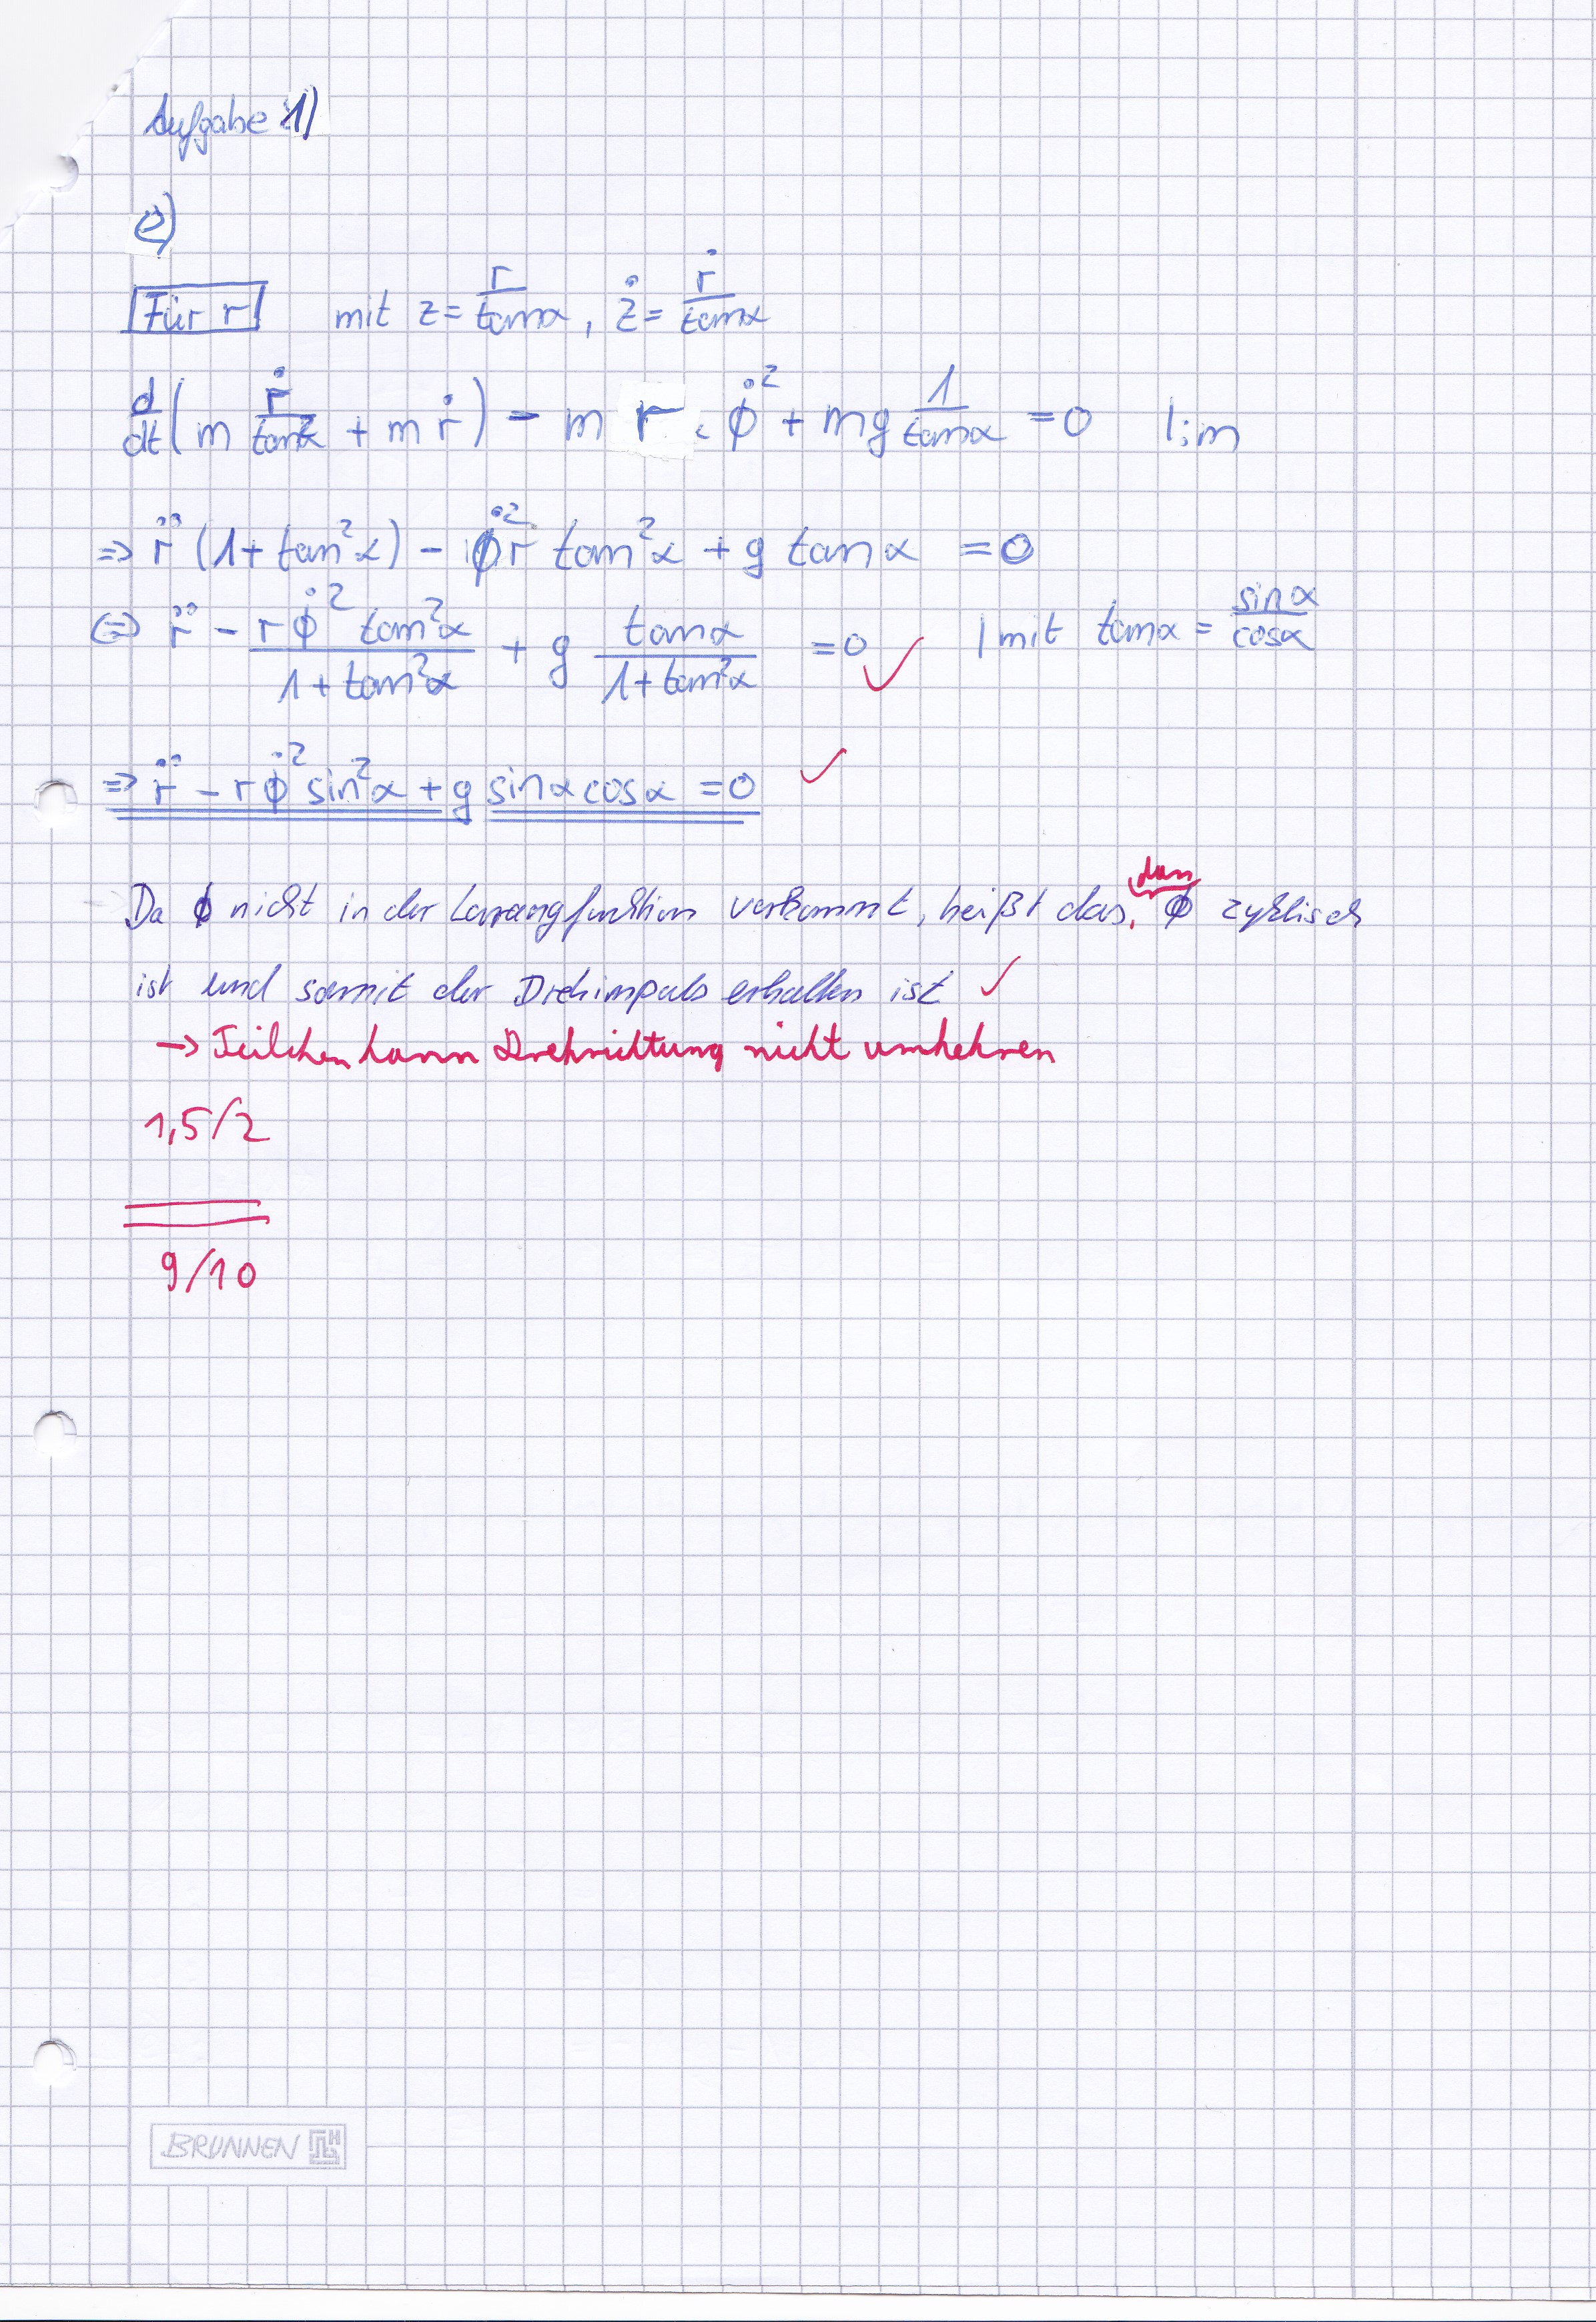 Aufgabe 1)
e)
Für r mit z = r/tanα, ż = ṙ/tanα
d/dt (m ṙ/tan²α + m ṙ) - m r · φ̇² + mg 1/tanα = 0 |:m
⇒ r̈ (1 + tan²α) - φ̇² r tan²α + g tanα = 0
⇔ r̈ - rφ̇² tan²α/(1 + tan²α) + g tanα/(1 + tan²α) = 0 ✓ | mit tanα = sinα/cosα
⇒ r̈ - rφ̇² sin²α + g sinα cosα = 0 ✓
dass
Da ϕ nicht in der Lagrangfunktion vorkommt, heißt das, ϕ zyklisch
ist und somit der Drehimpuls erhalten ist ✓
→ Teilchen kann Drehrichtung nicht umkehren
1,5/2
9/10
BRUNNEN